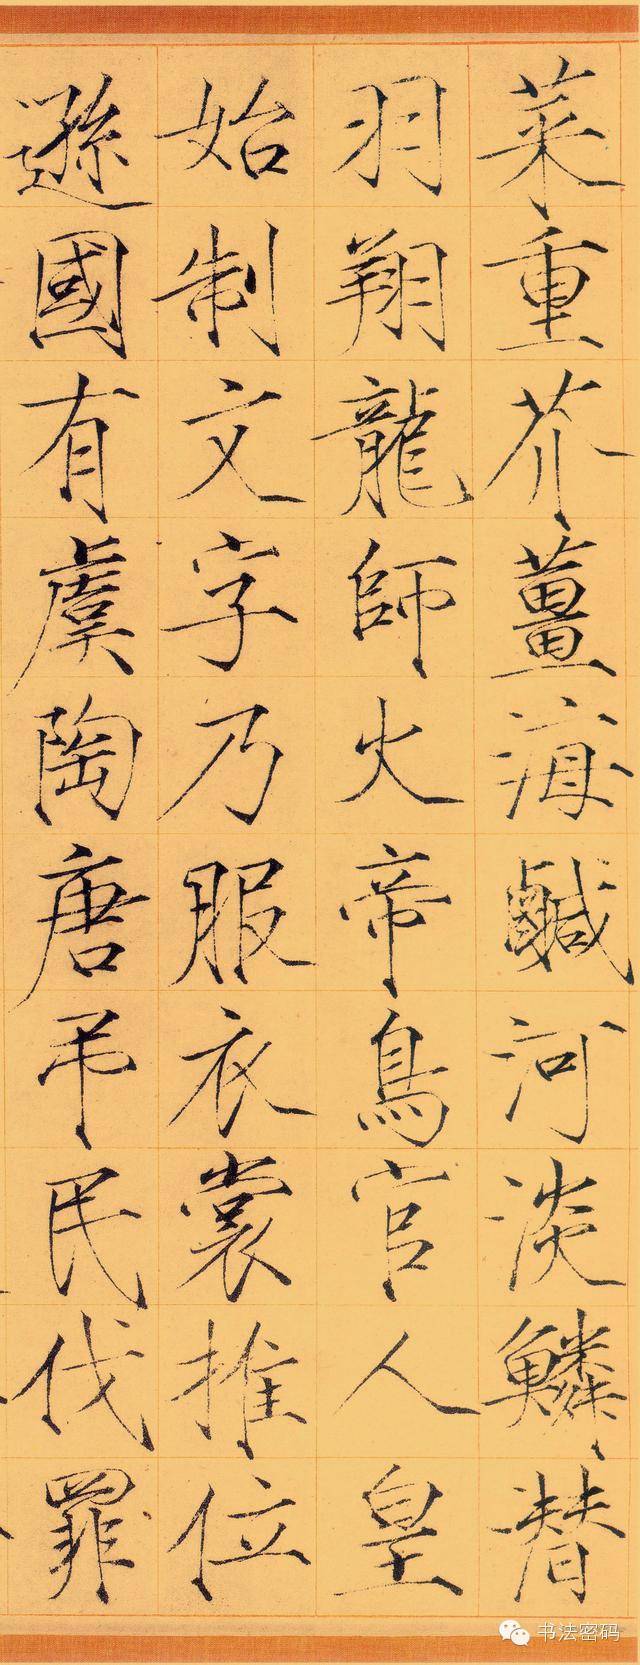 菜重芥薑海鹹河淡鱗潛
羽翔龍師火帝鳥官人皇
始制文字乃服衣裳推位
遜國有虞陶唐弔民伐罪
书法密码